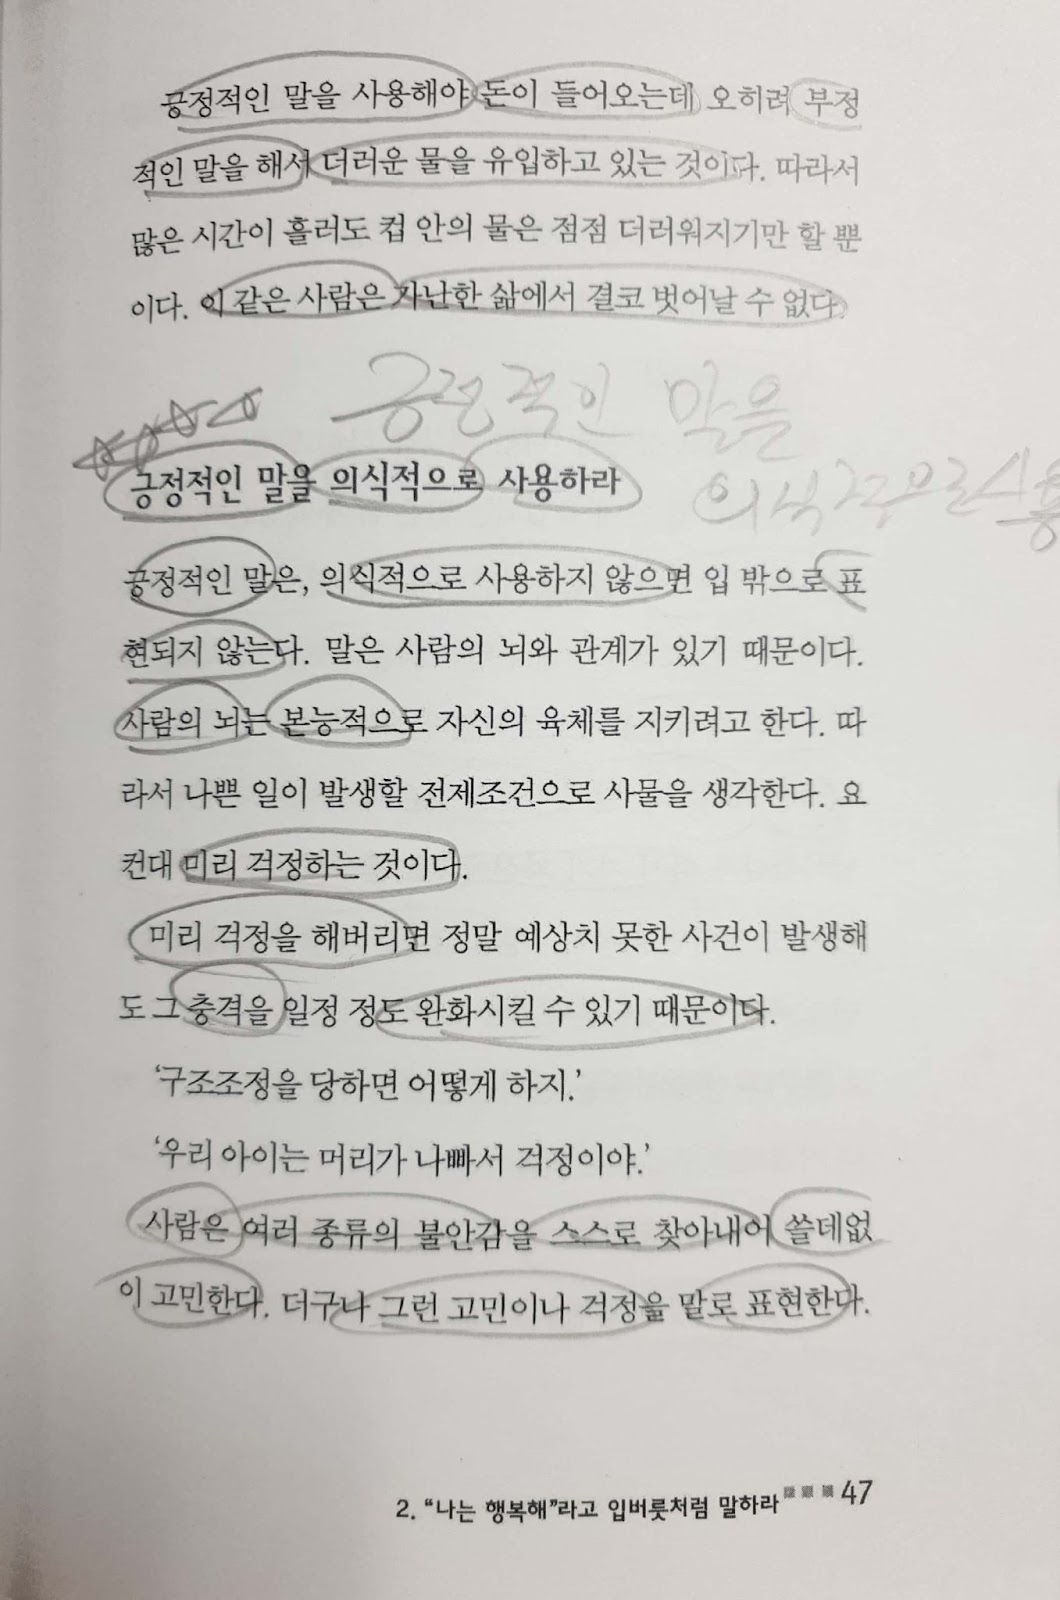 긍정적인 말을 사용해야 돈이 들어오는데 오히려 부정
적인 말을 해서 더러운 물을 유입하고 있는 것이다. 따라서
많은 시간이 흘러도 컵 안의 물은 점점 더러워지기만 할 뿐
이다. 이 같은 사람은 가난한 삶에서 결코 벗어날 수 없다.
긍정적인 말을
의식적으로 사용
긍정적인 말을 의식적으로 사용하라
긍정적인 말은, 의식적으로 사용하지 않으면 입 밖으로 표
현되지 않는다. 말은 사람의 뇌와 관계가 있기 때문이다.
사람의 뇌는 본능적으로 자신의 육체를 지키려고 한다. 따
라서 나쁜 일이 발생할 전제조건으로 사물을 생각한다. 요
컨대 미리 걱정하는 것이다.
미리 걱정을 해버리면 정말 예상치 못한 사건이 발생해
도 그 충격을 일정 정도 완화시킬 수 있기 때문이다.
‘구조조정을 당하면 어떻게 하지.’
‘우리 아이는 머리가 나빠서 걱정이야.’
사람은 여러 종류의 불안감을 스스로 찾아내어 쓸데없
이 고민한다. 더구나 그런 고민이나 걱정을 말로 표현한다.
2. “나는 행복해”라고 입버릇처럼 말하라 47